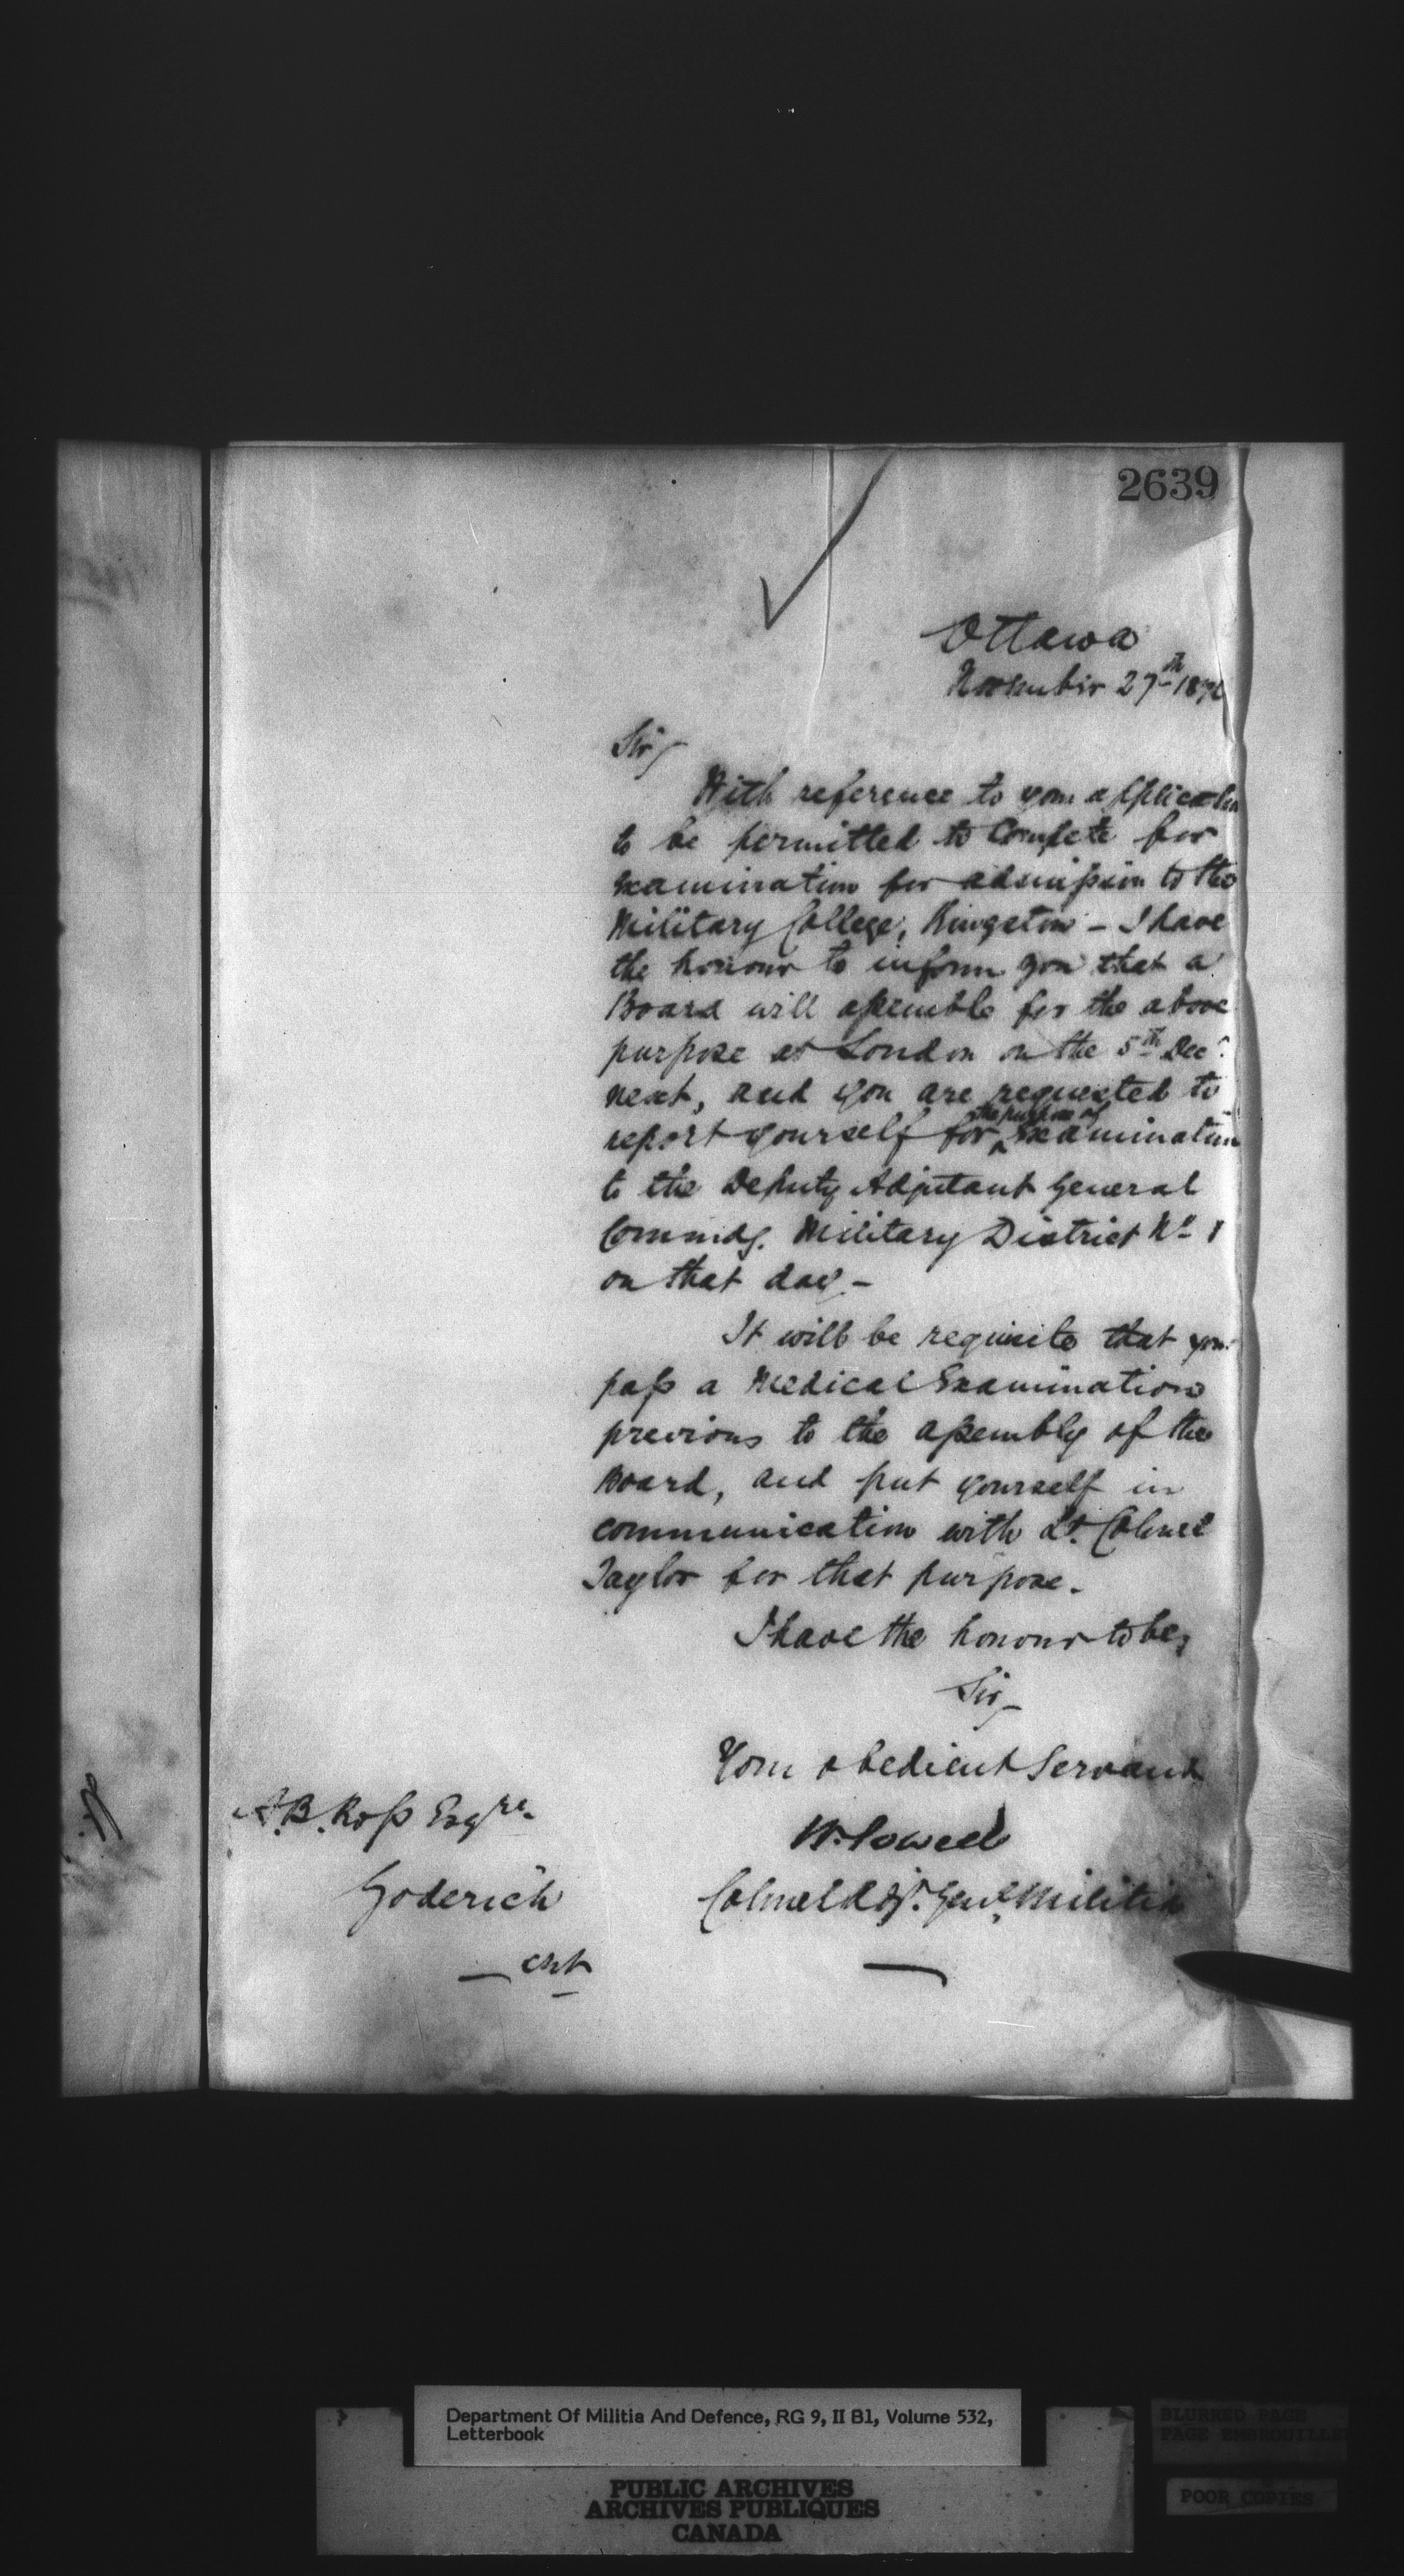 2639
Ottawa
November 27th 187
Sir,
With reference to your application
to be permitted to Compete for
Examination for admission to the
Military College, Kingston – I have
the honour to inform you that a
Board will assemble for the above
purpose at London on the 5th Decr.
next, and you are requested to
the purpose of
report yourself for Examination
to the Deputy Adjutant General
Commdg. Military District No 1
on that day –
It will be requisite that you
pass a Medical Examination
previous to the assembly of the
Board, and put yourself in
communication with Lt. Colonel
Taylor for that purpose.
I have the honour to be,
Sir,
Your obedient Servant
W. Powell
Colonel Adjt. Genl. Militia
A.B. Ross Esqre.
Goderich
Ont
Department Of Militia And Defence, RG 9, II B1, Volume 532,
Letterbook
PUBLIC ARCHIVES
ARCHIVES PUBLIQUES
CANADA
BLURRED PAGE
PAGE EMBROUILLE
POOR COPIES